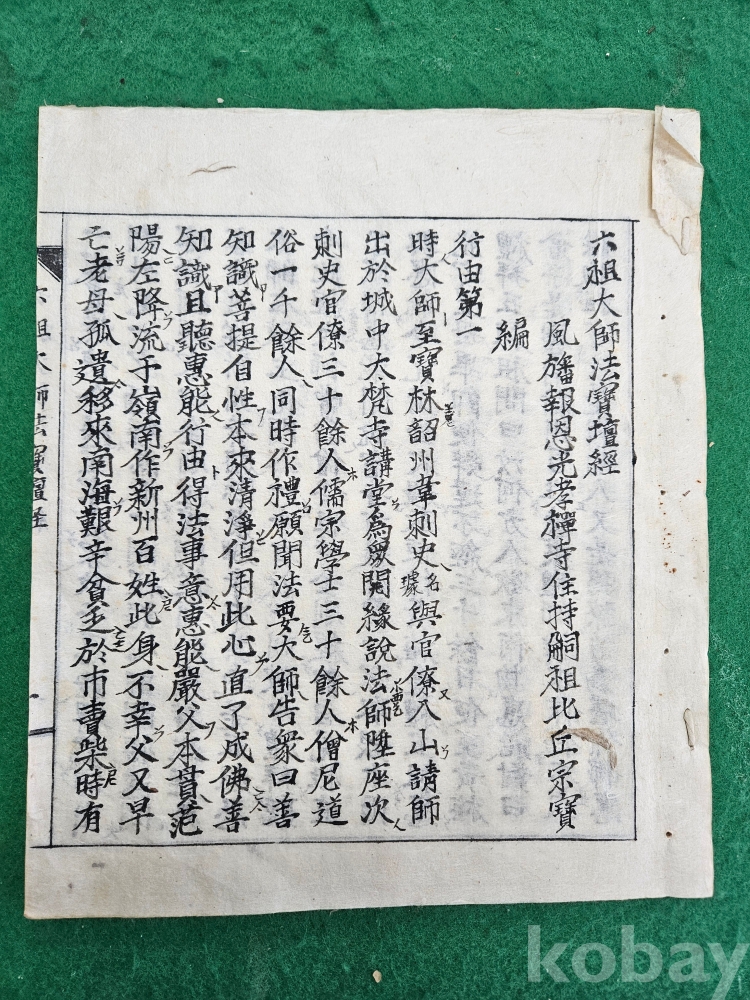 六祖大師法寶壇經
風旛報恩光孝禪寺住持嗣祖比丘宗寶
編
行由第一
時大師至寶林韶州韋刺史名璩與官僚入山請師
出於城中大梵寺講堂爲眾開緣說法師陞座次
刺史官僚三十餘人儒宗學士三十餘人僧尼道
俗一千餘人同時作禮願聞法要大師告衆曰善
知識菩提自性本來清淨但用此心直了成佛善
知識且聽惠能行由得法事意惠能嚴父本貫范
陽左降流于嶺南作新州百姓此身不幸父又早
亡老母孤遺移來南海艱辛貧乏於市賣柴時有
六祖大師法寶壇経
一
kobay